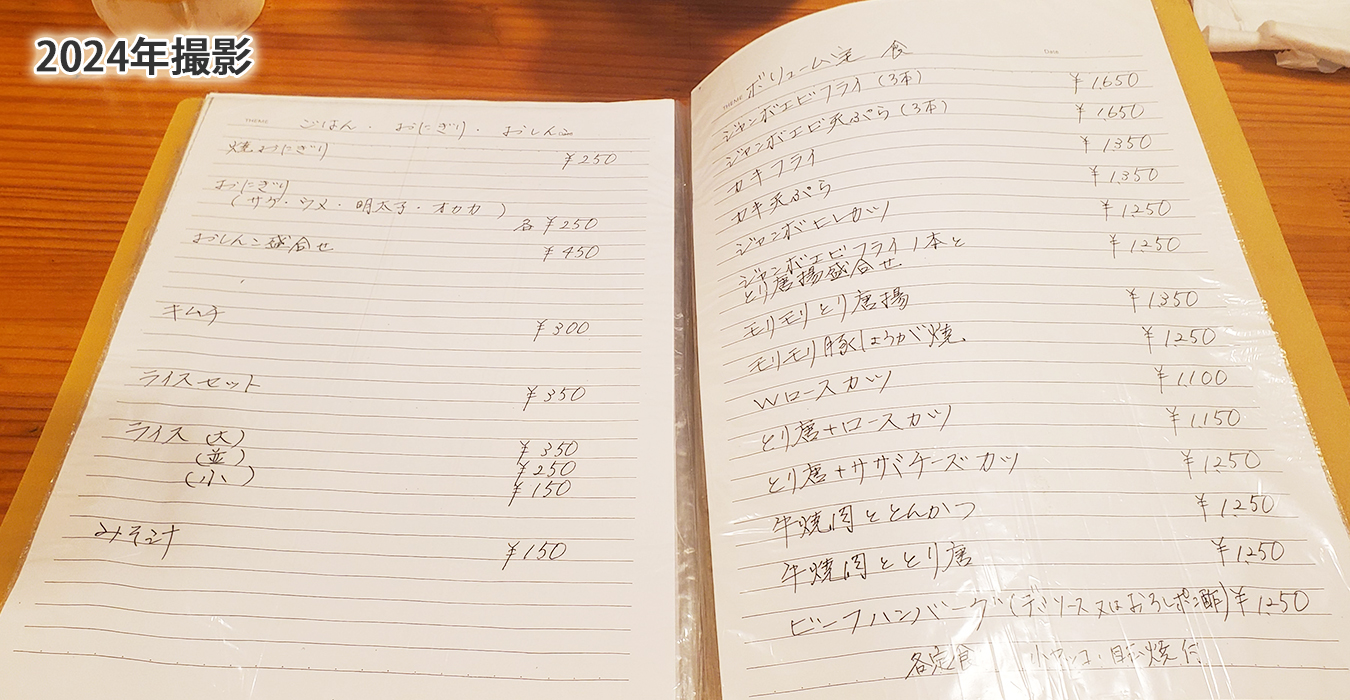 2024年撮影
THEME ごはん・おにぎり・おしんこ
焼おにぎり ¥250
おにぎり
(サケ・ウメ・明太子・オカカ) 各¥250
おしんこ盛合せ ¥450
キムチ ¥300
ライスセット ¥350
ライス(大) ¥350
(並) ¥250
(小) ¥150
みそ汁 ¥150
THEME ボリューム定食 Date
ジャンボエビフライ(3本) ¥1,650
ジャンボエビ天ぷら(3本) ¥1,650
カキフライ ¥1,350
カキ天ぷら ¥1,350
ジャンボヒレカツ ¥1,250
ジャンボエビフライ1本と ¥1,250
とり唐揚盛合せ
モリモリとり唐揚 ¥1,350
モリモリ豚しょうが焼 ¥1,250
Wロースカツ ¥1,100
とり唐+ロースカツ ¥1,150
とり唐+ササミチーズカツ ¥1,250
牛焼肉ととんかつ ¥1,250
牛焼肉ととり唐 ¥1,250
ビーフハンバーグ(デミソース又はおろしポン酢) ¥1,250
各定食 小